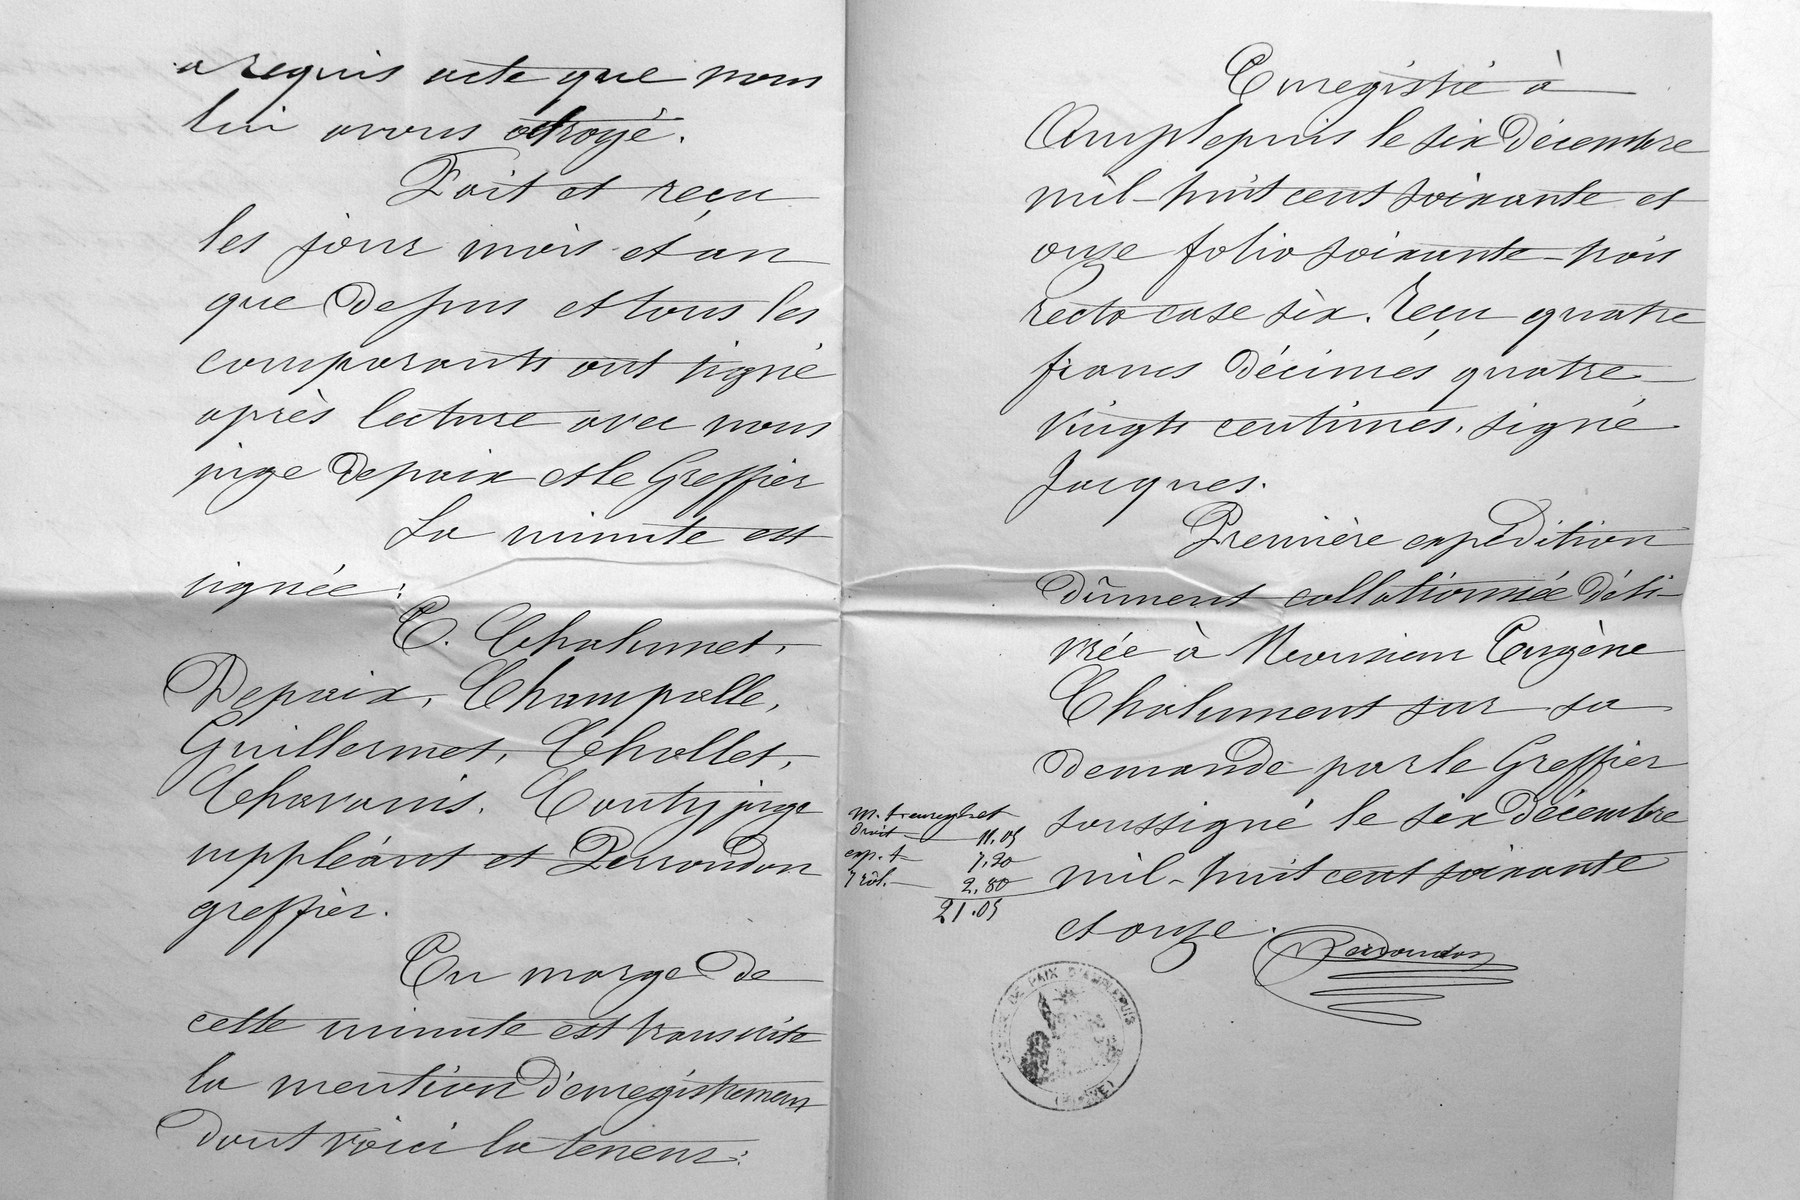 a requis acte que nous
lui avons octroyé.
Fait et reçu
les jour mois et an
que Dessus et tous les
comparants ont signé
après lecture avec nous
juge De paix et le Greffier
La minute est
signée:
E. Chalumet,
Depaix, Champalle,
Guillermet, Chollet,
Chavanis. Coutty juge
suppléant et Perroudon
greffier.
En marge De
cette minute est transcrite
la mention D'enregistrement
Dont voici la teneur:
Enregistré à
Amplepuis le six Décembre
mil-huit cent soixante et
onze folio soixante-trois
recto case six. Reçu quatre
francs Décimes quatre
vingts centimes. signé
Jacques.
Première expédition
Dûment collationnée Déli-
vrée à Monsieur Eugène
Chalument sur sa
demande par le Greffier
soussigné le six Décembre
mil-huit cent soixante
et onze.
Perroudon
Droit 11.05
exp. 7.20
7 rôl. 2.80
21.05
DE PAIX D'AMPLEPUIS
(RHÔNE)